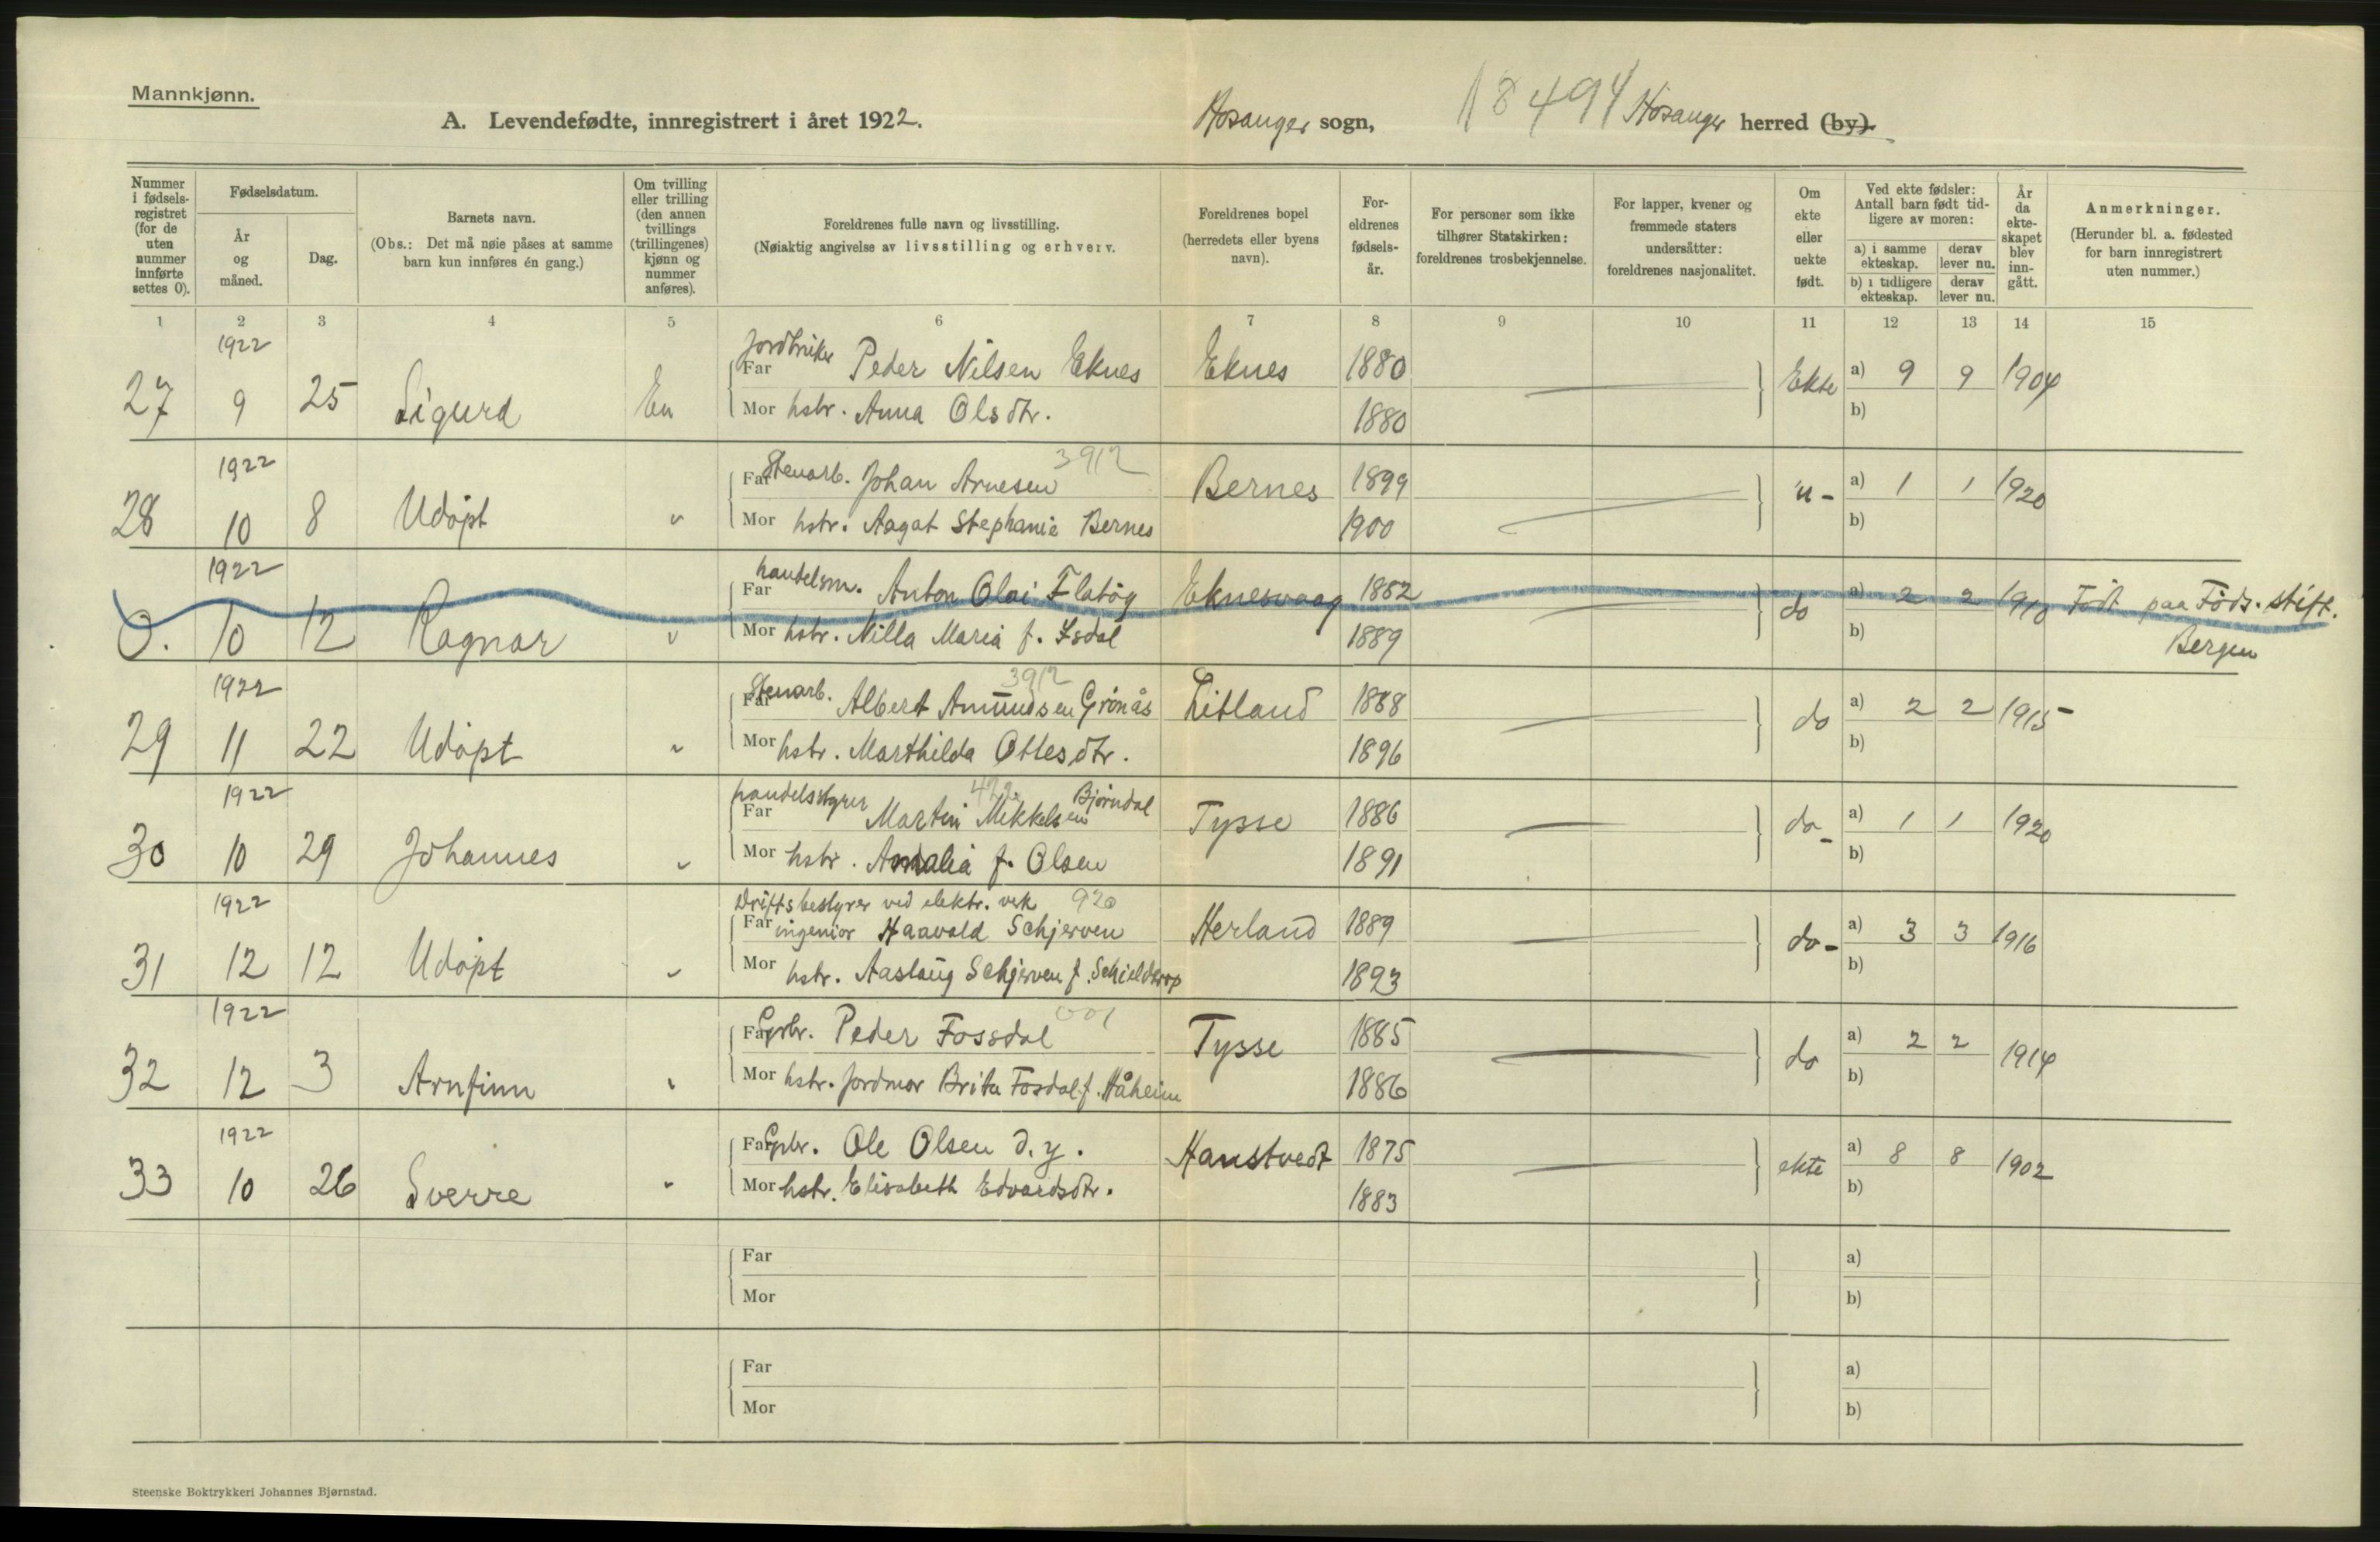 Mannkjønn.
A. Levendefødte, innregistrert i året 1922.
Hosanger sogn, 18494 Hosanger herred (by).
Nummer i fødsels- registret (for de uten nummer innførte settes 0).
Fødselsdatum.
År og måned.
Dag.
Barnets navn.
(Obs.: Det må nøie påses at samme barn kun innføres én gang.)
Om tvilling eller trilling (den annen tvillings (trillingenes) kjønn og nummer anføres).
Foreldrenes fulle navn og livsstilling.
(Nøiaktig angivelse av livsstilling og erhverv.
Foreldrenes bopel (herredets eller byens navn).
For- eldrenes fødsels- år.
For personer som ikke tilhører Statskirken: foreldrenes trosbekjennelse.
For lapper, kvener og fremmede staters undersåtter: foreldrenes nasjonalitet.
Om ekte eller uekte født.
Ved ekte fødsler: Antall barn født tid- ligere av moren:
a) i samme ekteskap.
derav lever nu.
b) i tidligere ekteskap.
derav lever nu.
År da ekte- skapet blev inn- gått.
Anmerkninger.
(Herunder bl. a. fødested for barn innregistrert uten nummer.)
1 2 3 4 5 6 7 8 9 10 11 12 13 14 15
1922
Jordbruker
27 9 25 Sigurd En Far Peder Nilsen Eknes Eknes 1880 Ekte a) 9 9 1904
Mor hstr. Anna Olsdtr. 1880 b)
1922 3912
28 10 8 Udöpt " Far Stenarb. Johan Arnesen Bernes 1899 "- a) 1 1 1920
Mor hstr. Aagat Stephanie Bernes 1900 b)
1922
0. 10 12 Ragnar " Far handelsm. Anton Olai Flatöy Eknesvaag 1882 do a) 2 2 1910 Födt paa Föds. stift.
Mor hstr. Nilla Maria f. Isdal 1889 b) Bergen
1922 3912
29 11 22 Udöpt " Far Stenarb. Albert Amundsen Grönås Litland 1888 do a) 2 2 1915
Mor hstr. Marthilda Ottesdtr. 1896 b)
1922 422
30 10 29 Johannes " Far handelsstyrer Martin Mikkelsen Bjørndal Tysse 1886 do- a) 1 1 1920
Mor hstr. Amalia f. Olsen 1891 b)
1922
Driftsbestyrer ved elektr. verk 920
31 12 12 Udöpt " Far ingeniör Haavald Schjerven Herland 1889 do- a) 3 3 1916
Mor hstr. Aaslaug Schjerven f. Schielderop 1893 b)
1922 001
32 12 3 Arnfinn " Far Grbr. Peder Fossdal Tysse 1885 do a) 2 2 1914
Mor hstr. Jordmor Brita Fosdal f. Håheim 1886 b)
1922
33 10 26 Sverre " Far Grbr. Ole Olsen d. y. Hanstvedt 1875 ekte a) 8 8 1902
Mor hstr. Elisabeth Edvardsdtr. 1883 b)
Far a)
Mor b)
Far a)
Mor b)
Steenske Boktrykkeri Johannes Bjørnstad.